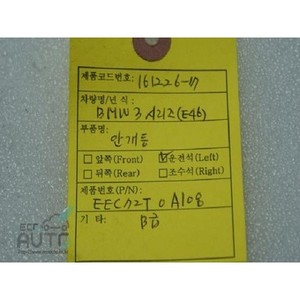 제품코드번호: 161226-17
차량명/년식:
BMW 3 시리즈(E46)
부품명:
안개등
□앞쪽(Front) ☑운전석(Left)
□뒤쪽(Rear) □조수석(Right)
제품번호(P/N):
EEC72T0A108
기 타: B급
ECO
AUTO